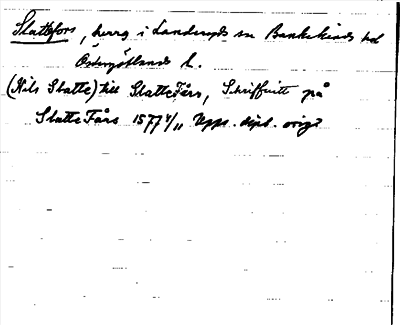 Slattefors, herrg i Landeryds sn Bankekinds hd
Östergötlands l.
(Nils Slatte) till SlatteFårs, Schriffuitt på
SlatteFårs 1577 4/11 Upps. dipl. orig.